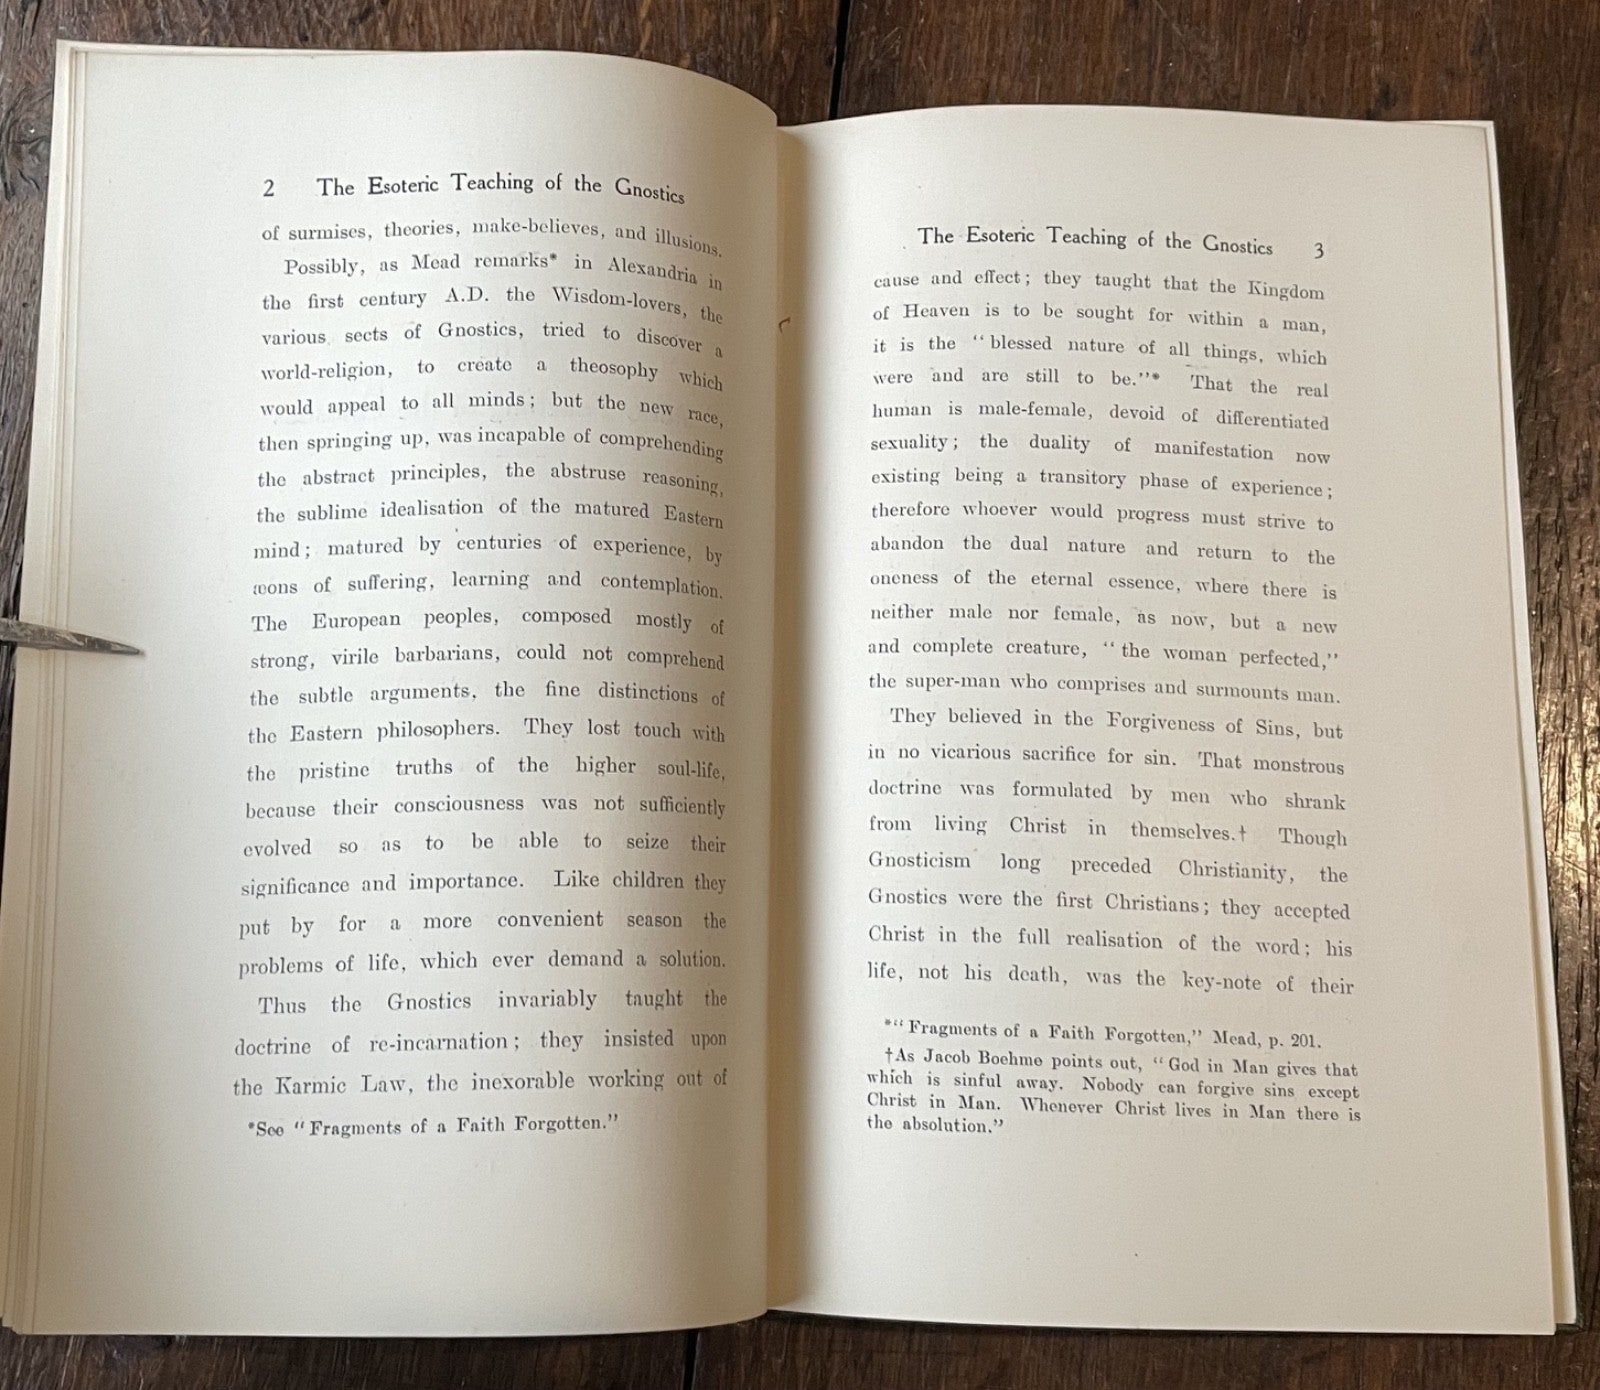 2 The Esoteric Teaching of the Gnostics
of surmises, theories, make-believes, and illusions.
Possibly, as Mead remarks* in Alexandria in
the first century A.D. the Wisdom-lovers, the
various sects of Gnostics, tried to discover a
world-religion, to create a theosophy which
would appeal to all minds; but the new race,
then springing up, was incapable of comprehending
the abstract principles, the abstruse reasoning,
the sublime idealisation of the matured Eastern
mind; matured by centuries of experience, by
æons of suffering, learning and contemplation.
The European peoples, composed mostly of
strong, virile barbarians, could not comprehend
the subtle arguments, the fine distinctions of
the Eastern philosophers. They lost touch with
the pristine truths of the higher soul-life,
because their consciousness was not sufficiently
evolved so as to be able to seize their
significance and importance. Like children they
put by for a more convenient season the
problems of life, which ever demand a solution.
Thus the Gnostics invariably taught the
doctrine of re-incarnation; they insisted upon
the Karmic Law, the inexorable working out of
*See "Fragments of a Faith Forgotten."
The Esoteric Teaching of the Gnostics 3
cause and effect; they taught that the Kingdom
of Heaven is to be sought for within a man,
it is the "blessed nature of all things, which
were and are still to be."* That the real
human is male-female, devoid of differentiated
sexuality; the duality of manifestation now
existing being a transitory phase of experience;
therefore whoever would progress must strive to
abandon the dual nature and return to the
oneness of the eternal essence, where there is
neither male nor female, as now, but a new
and complete creature, "the woman perfected,"
the super-man who comprises and surmounts man.
They believed in the Forgiveness of Sins, but
in no vicarious sacrifice for sin. That monstrous
doctrine was formulated by men who shrank
from living Christ in themselves.† Though
Gnosticism long preceded Christianity, the
Gnostics were the first Christians; they accepted
Christ in the full realisation of the word; his
life, not his death, was the key-note of their
*"Fragments of a Faith Forgotten," Mead, p. 201.
†As Jacob Boehme points out, "God in Man gives that
which is sinful away. Nobody can forgive sins except
Christ in Man. Whenever Christ lives in Man there is
the absolution."